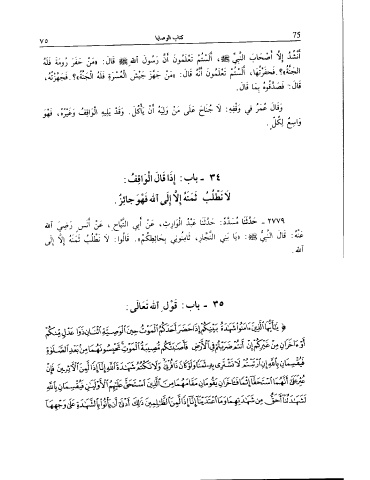 75 كتاب الوصايا ٧٥
أَنْشُدُ إِلَّا أَصْحَابَ النَّبِيِّ ﷺ، أَلَسْتُمْ تَعْلَمُونَ أَنَّ رَسُولَ اللهِ ﷺ قَالَ: «مَنْ حَفَرَ رُومَةَ فَلَهُ
الْجَنَّةُ»؟. فَحَفَرْتُهَا، أَلَسْتُمْ تَعْلَمُونَ أَنَّهُ قَالَ: «مَنْ جَهَّزَ جَيْشَ الْعُسْرَةِ فَلَهُ الْجَنَّةُ»؟. فَجَهَّزْتُهُ،
قَالَ: فَصَدَّقُوهُ بِمَا قَالَ.
وَقَالَ عُمَرُ فِي وَقْفِهِ: لَا جُنَاحَ عَلَى مَنْ وَلِيَهُ أَنْ يَأْكُلَ. وَقَدْ يَلِيهِ الْوَاقِفُ وَغَيْرُهُ، فَهُوَ
وَاسِعٌ لِكُلٍّ.
٣٤ - باب: إِذَا قَالَ الْوَاقِفُ:
لَا نَطْلُبُ ثَمَنَهُ إِلَّا إِلَى اللهِ فَهُوَ جَائِزٌ.
٢٧٧٩ - حَدَّثَنَا مُسَدَّدٌ: حَدَّثَنَا عَبْدُ الْوَارِثِ، عَنْ أَبِي التَّيَّاحِ، عَنْ أَنَسٍ رَضِيَ اللهُ
عَنْهُ: قَالَ النَّبِيُّ ﷺ: «يَا بَنِي النَّجَّارِ، ثَامِنُونِي بِحَائِطِكُمْ». قَالُوا: لَا نَطْلُبُ ثَمَنَهُ إِلَّا إِلَى
اللهِ.
٣٥ - باب: قَوْلِ اللهِ تَعَالَى:
﴿ يَا أَيُّهَا الَّذِينَ آمَنُوا شَهَادَةُ بَيْنِكُمْ إِذَا حَضَرَ أَحَدَكُمُ الْمَوْتُ حِينَ الْوَصِيَّةِ اثْنَانِ ذَوَا عَدْلٍ مِنْكُمْ
أَوْ آخَرَانِ مِنْ غَيْرِكُمْ إِنْ أَنْتُمْ ضَرَبْتُمْ فِي الْأَرْضِ فَأَصَابَتْكُمْ مُصِيبَةُ الْمَوْتِ تَحْبِسُونَهُمَا مِنْ بَعْدِ الصَّلَاةِ
فَيُقْسِمَانِ بِاللهِ إِنِ ارْتَبْتُمْ لَا نَشْتَرِي بِهِ ثَمَنًا وَلَوْ كَانَ ذَا قُرْبَى وَلَا نَكْتُمُ شَهَادَةَ اللهِ إِنَّا إِذًا لَمِنَ الْآثِمِينَ فَإِنْ
عُثِرَ عَلَى أَنَّهُمَا اسْتَحَقَّا إِثْمًا فَآخَرَانِ يَقُومَانِ مَقَامَهُمَا مِنَ الَّذِينَ اسْتَحَقَّ عَلَيْهِمُ الْأَوْلَيَانِ فَيُقْسِمَانِ بِاللهِ
لَشَهَادَتُنَا أَحَقُّ مِنْ شَهَادَتِهِمَا وَمَا اعْتَدَيْنَا إِنَّا إِذًا لَمِنَ الظَّالِمِينَ ذَلِكَ أَدْنَى أَنْ يَأْتُوا بِالشَّهَادَةِ عَلَى وَجْهِهَا